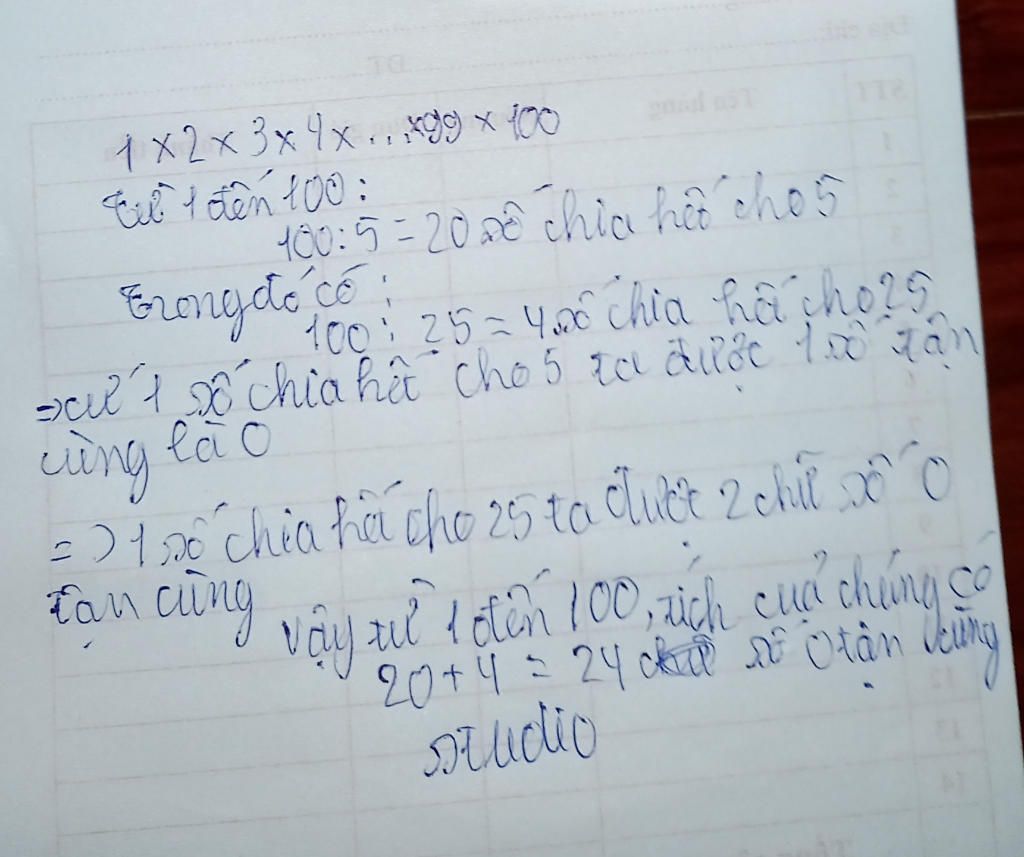 1 x 2 x 3 x 4 x ... x 99 x 100
từ 1 đến 100:
100 : 5 = 20 số chia hết cho 5
trong đó có:
100 : 25 = 4 số chia hết cho 25
=> cứ 1 số chia hết cho 5 ta được 1 số tận
cùng là 0
=> 1 số chia hết cho 25 ta được 2 chữ số 0
tận cùng
vậy từ 1 đến 100, tích của chúng có
20 + 4 = 24 số 0 tận cùng
studio
ĐT
STT
Tên hàng
1
2
3
6
7
9
12
13
14